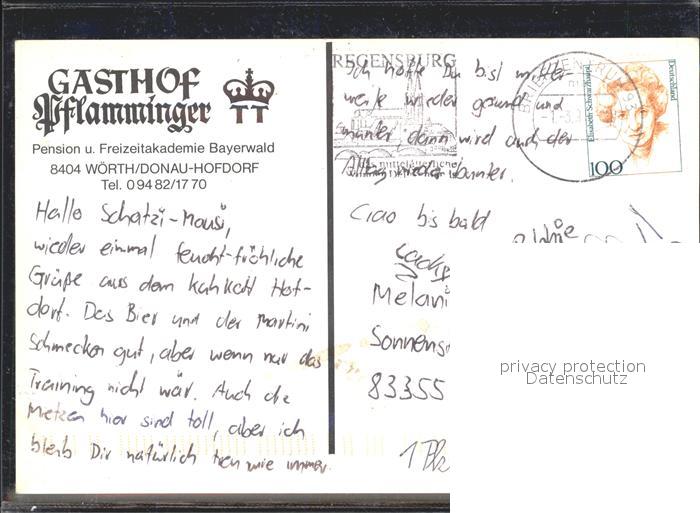 GASTHOF
Pflamminger
TT
Pension u. Freizeitakademie Bayerwald
8404 WÖRTH/DONAU-HOFDORF
Tel. 0 94 82/17 70
Hallo Schatzi-Mausi,
wieder einmal feucht-fröhliche
Grüße aus dem Hof-
dorf. Das Bier und der Martini
schmecken gut, aber wenn nur das
Training nicht wär. Auch die
Mietzen hier sind toll, aber ich
bleib Dir natürlich treu wie immer.
REGENSBURG
Ich hoffe Du bist mittler-
weile wieder gesund und
munter, dann wird auch der
Alltag wieder bunter.
mittelalterliche
Ciao bis bald
Deutschland
Elisabeth Schwarzhaupt
100
Melani
Sonnens
83355
privacy protection
Datenschutz